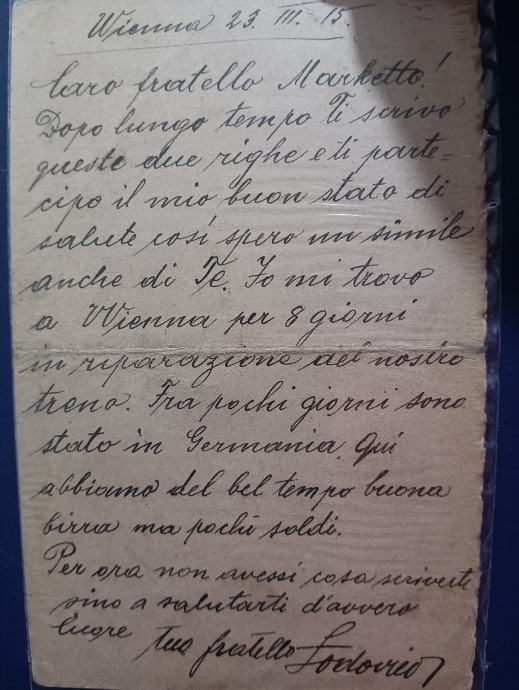 Wienna 23. III. 15.
Caro fratello Marketto!
Dopo lungo tempo Ti scrivo
queste due righe e ti parte=
cipo il mio buon stato di
salute cosi spero un simile
anche di Te. Io mi trovo
a Wienna per 8 giorni
in riparazione del nostro
treno. Fra pochi giorni sono
stato in Germania. Qui
abbiamo del bel tempo buona
birra ma pochi soldi.
Per ora non avessi cosa scriverte
sino a salutarti d'avvero
Cuore tuo fratello Lodovico